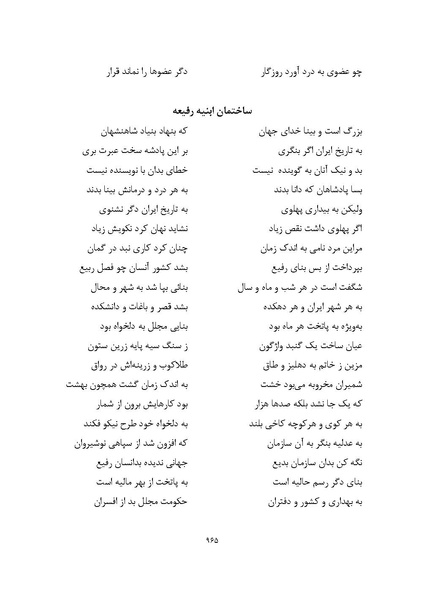 چو عضوی به درد آورد روزگار	دگر عضوها را نماند قرار
ساختمان ابنیه رفیعه
بزرگ است و بینا خدای جهان	که بنهاد بنیاد شاهنشهان
به تاریخ ایران اگر بنگری	بر این پادشه سخت عبرت بری
بد و نیک آنان به گوینده نیست	خطای بدان با نویسنده نیست
بسا پادشاهان که دانا بدند	به هر درد و درمانش بینا بدند
ولیکن به بیداری پهلوی	به تاریخ ایران دگر نشنوی
اگر پهلوی داشت نقص زیاد	نشاید نهان کرد نکویش زیاد
مراین مرد نامی به اندک زمان	چنان کرد کاری نبد در گمان
بپرداخت از بس بنای رفیع	بشد کشور آنسان چو فصل ربیع
شگفت است در هر شب و ماه و سال	بنائی بپا شد به شهر و محال
به هر شهر ایران و هر دهکده	بشد قصر و باغات و دانشکده
به‌ویژه به پاتخت هر ماه بود	بنایی مجلل به دلخواه بود
عیان ساخت یک گنبد واژگون	ز سنگ سیه پایه زرین ستون
مزین ز خاتم به دهلیز و طاق	طلاکوب و زرینه‌اش در رواق
شمیران مخروبه می‌بود خشت	به اندک زمان گشت همچون بهشت
که یک جا نشد بلکه صدها هزار	بود کارهایش برون از شمار
به هر کوی و هرکوچه کاخی بلند	به دلخواه خود طرح نیکو فکند
به عدلیه بنگر به آن سازمان	که افزون شد از سپاهی نوشیروان
نگه کن بدان سازمان بدیع	جهانی ندیده بدانسان رفیع
بنای دگر رسم حالیه است	به پاتخت از بهر مالیه است
به بهداری و کشور و دفتران	حکومت مجلل بد از افسران
۹۶۵